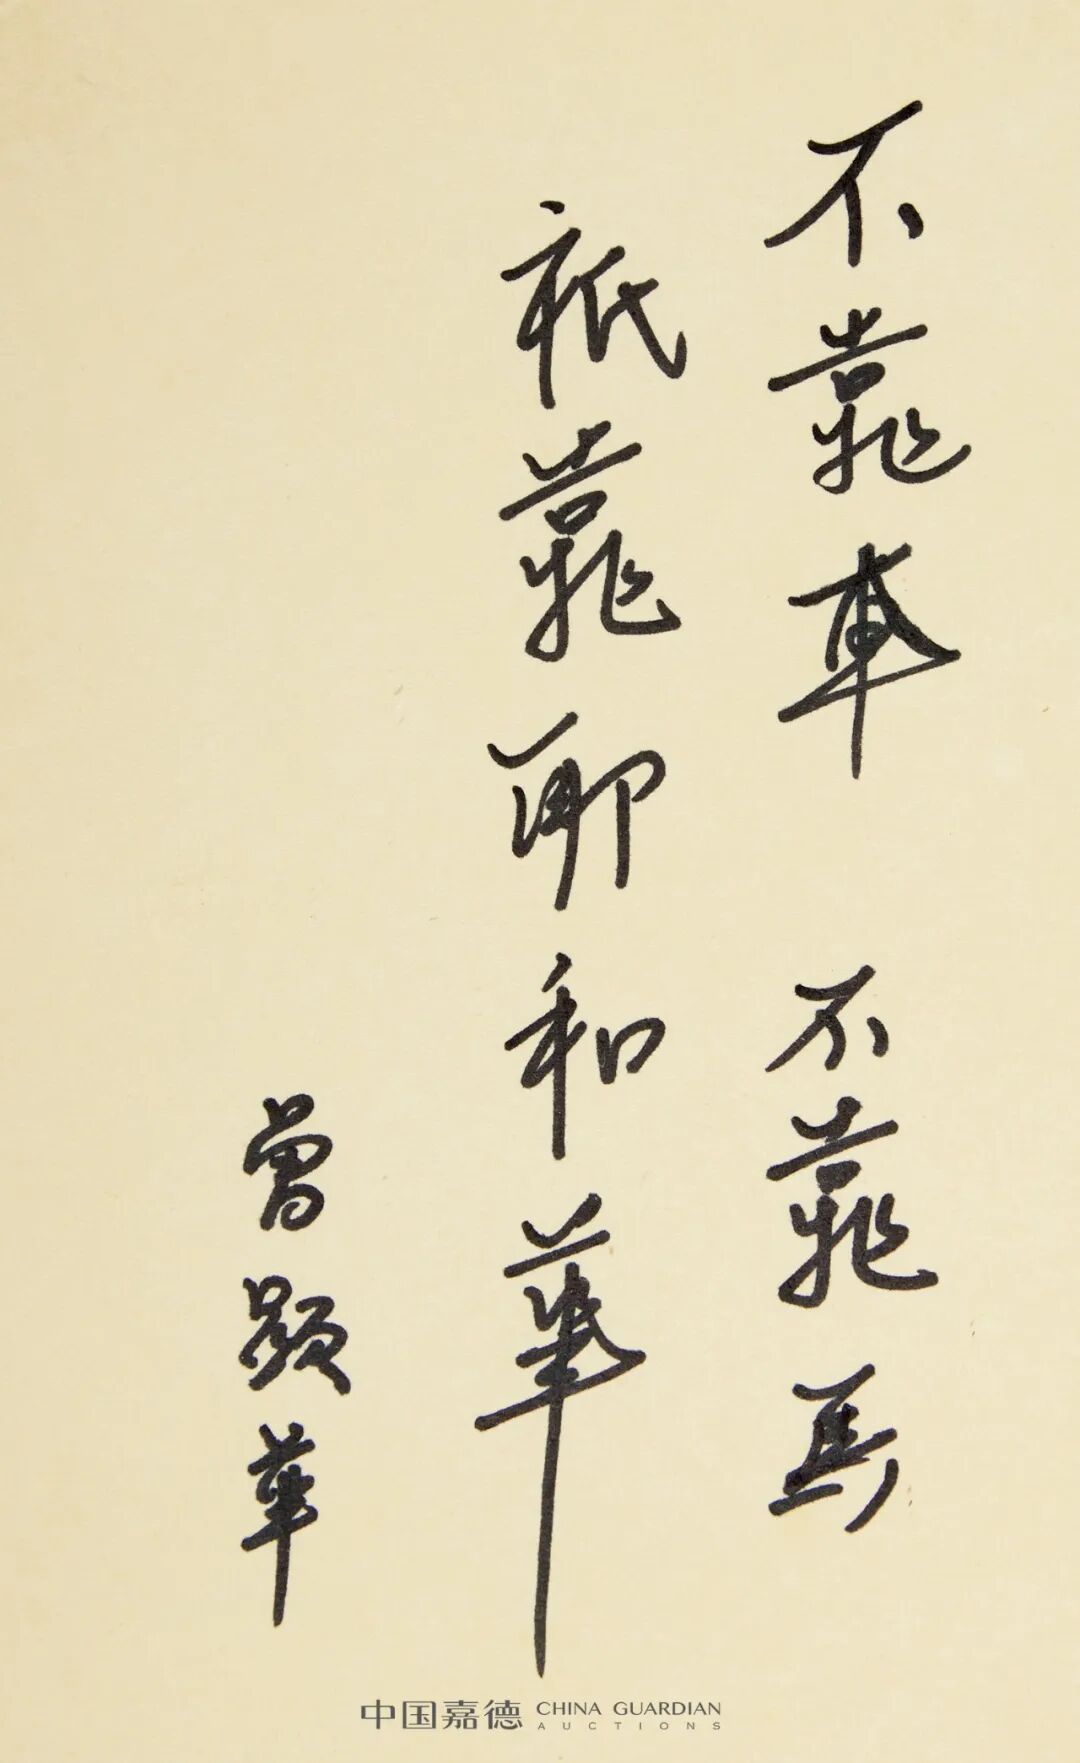 不靠車 不靠馬
祇靠耶和華
曾顯華
中国嘉德 CHINA GUARDIAN
AUCTIONS